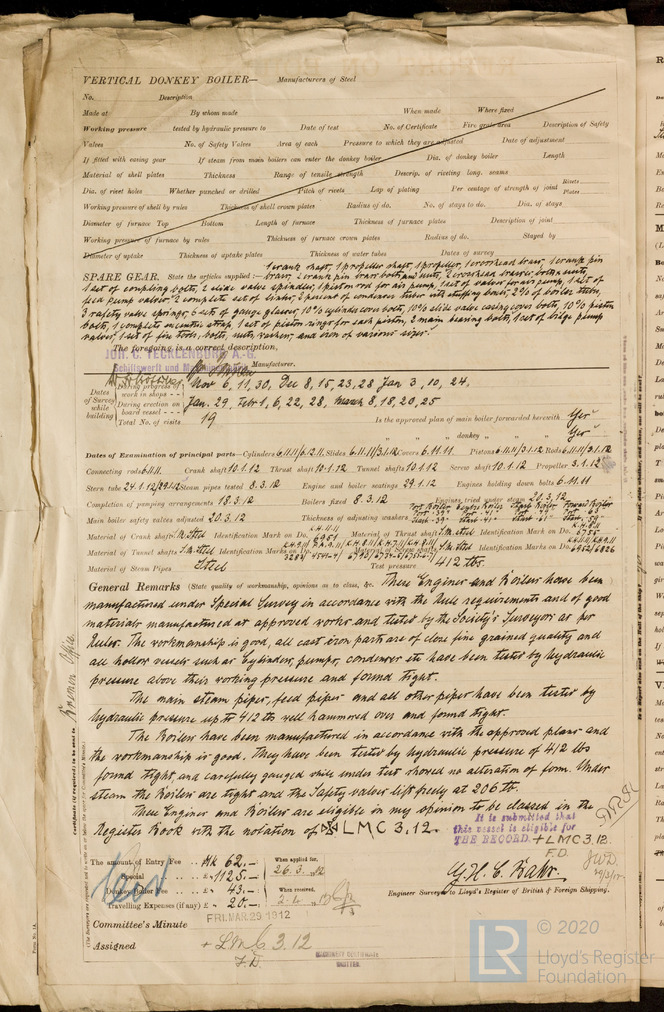 VERTICAL DONKEY BOILER— Manufacturers of Steel
No. Description
Made at By whom made When made Where fixed
Working pressure tested by hydraulic pressure to Date of test No. of Certificate Fire grate area Description of Safety
Valves No. of Safety Valves Area of each Pressure to which they are adjusted Date of adjustment
If fitted with easing gear If steam from main boilers can enter the donkey boiler Dia. of donkey boiler Length
Material of shell plates Thickness Range of tensile strength Descrip. of riveting long. seams
Dia. of rivet holes Whether punched or drilled Pitch of rivets Lap of plating Per centage of strength of joint Rivets Plates
Working pressure of shell by rules Thickness of shell crown plates Radius of do. No. of stays to do. Dia. of stays
Diameter of furnace Top Bottom Length of furnace Thickness of furnace plates Description of joint
Working pressure of furnace by rules Thickness of furnace crown plates Radius of do. Stayed by
Diameter of uptake Thickness of uptake plates Thickness of water tubes Dates of survey
SPARE GEAR. State the articles supplied:— 1 crank shaft, 1 propeller shaft, 1 propeller, 1 crosshead brass, 1 crank pin
brass, 2 crank pin brass bolts and nuts, 2 crosshead brasses bolts & nuts,
1 set of coupling bolts, 2 slide valve spindles, 1 piston rod for air pump, 1 set of valves for air pump, 1 set of
feed pump valves, 2 complete set of links, 2 percent of condenser tubes with stuffing boxes, 2% of boiler tubes,
3 safety valve springs, 6 sets of gauge glasses, 10% cylinder cover bolts, 10% slide valve casing cover bolts, 10% piston
bolts, 1 complete eccentric strap, 1 set of piston rings for each piston, 2 main bearing bolts, 1 set of bilge pump
valves, 1 set of fire tools, bolts, nuts, washers, and iron of various sizes.
The foregoing is a correct description,
JOH. C. TECKLENBORG A.-G.
Schiffswerft und Maschinenfabrik Manufacturer.
Dates of Survey while building During progress of work in shops - - Nov 6, 11, 30, Dec 8, 15, 23, 28 Jan 3, 10, 24,
During erection on board vessel - - - Jan. 29, Febr 1, 6, 22, 28, March 8, 18, 20, 25
Total No. of visits 19 Is the approved plan of main boiler forwarded herewith Yes
" " " donkey " " " Yes
Dates of Examination of principal parts—Cylinders 6.11.11/6.12.11 Slides 6.11.11/3.1.12 Covers 6.11.11 Pistons 6.11.11/3.1.12 Rods 6.11.11/3.1.12
Connecting rods 6.11.11. Crank shaft 10.1.12 Thrust shaft 10.1.12 Tunnel shafts 10.1.12 Screw shaft 10.1.12 Propeller 3.1.12
Stern tube 24.1.12/29.1.12 Steam pipes tested 8.3.12 Engine and boiler seatings 29.1.12 Engines holding down bolts 6.11.11
Completion of pumping arrangements 18.3.12 Boilers fixed 8.3.12 Engines tried under steam 20.3.12
Main boiler safety valves adjusted 20.3.12 Thickness of adjusting washers
Material of Crank shaft S.M. Steel Identification Mark on Do. 6951 Material of Thrust shaft S.M. Steel Identification Mark on Do. 6755
Material of Tunnel shafts S.M. Steel Identification Marks on Do. Material of Screw shafts S.M. Steel Identification Marks on Do. 6952/6826
Material of Steam Pipes Steel Test pressure 412 lbs.
General Remarks (State quality of workmanship, opinions as to class, &c. These Engines and Boilers have been
manufactured under Special Survey in accordance with the Rule requirements and of good
materials manufactured at approved works and tested by the Society's Surveyors as per
Rules. The workmanship is good, all cast iron parts are of close fine grained quality and
all hollow vessels such as Cylinders, pumps, condenser etc have been tested by hydraulic
pressure above their working pressure and found tight.
The main steam pipes, feed pipes and all other pipes have been tested by
hydraulic pressure up to 412 lbs well hammered over and found tight.
The Boilers have been manufactured in accordance with the approved plans and
the workmanship is good. They have been tested by hydraulic pressure of 412 lbs
found tight and carefully gauged while under test showed no alteration of form. Under
steam the Boilers are tight and the Safety valves lift freely at 206 lb.
These Engines and Boilers are eligible in my opinion to be classed in the
Register Book with the notation of LMC 3,12.
It is submitted that
this vessel is eligible for
THE RECORD. + LMC 3.12.
F.D.
The amount of Entry Fee .. Mk 62.—
Special .. £ 1125.—
Donkey Boiler Fee .. £ 43.—
Travelling Expenses (if any) £ 20.—
When applied for,
26.3.12
When received,
Engineer Surveyor to Lloyd's Register of British & Foreign Shipping.
Committee's Minute FRI. MAR. 29. 1912
Assigned + LMC 3.12
F.D.
MACHINERY CERTIFICATE
WRITTEN
Bremen Office
Certificate (if required) to be sent to
© 2020
LR Lloyd's Register
Foundation